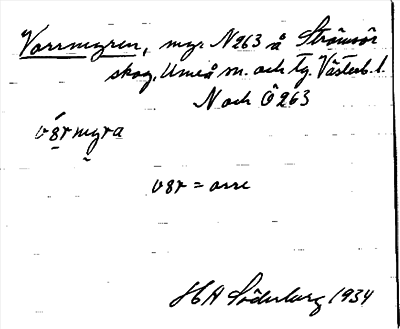 Vorrmyren, myr N263 å Strömsör
skog, Umeå sn. och tg. Västerb. l.
N och Ö 263
v8rmyra
v8r = orre
HA Söderberg 1934